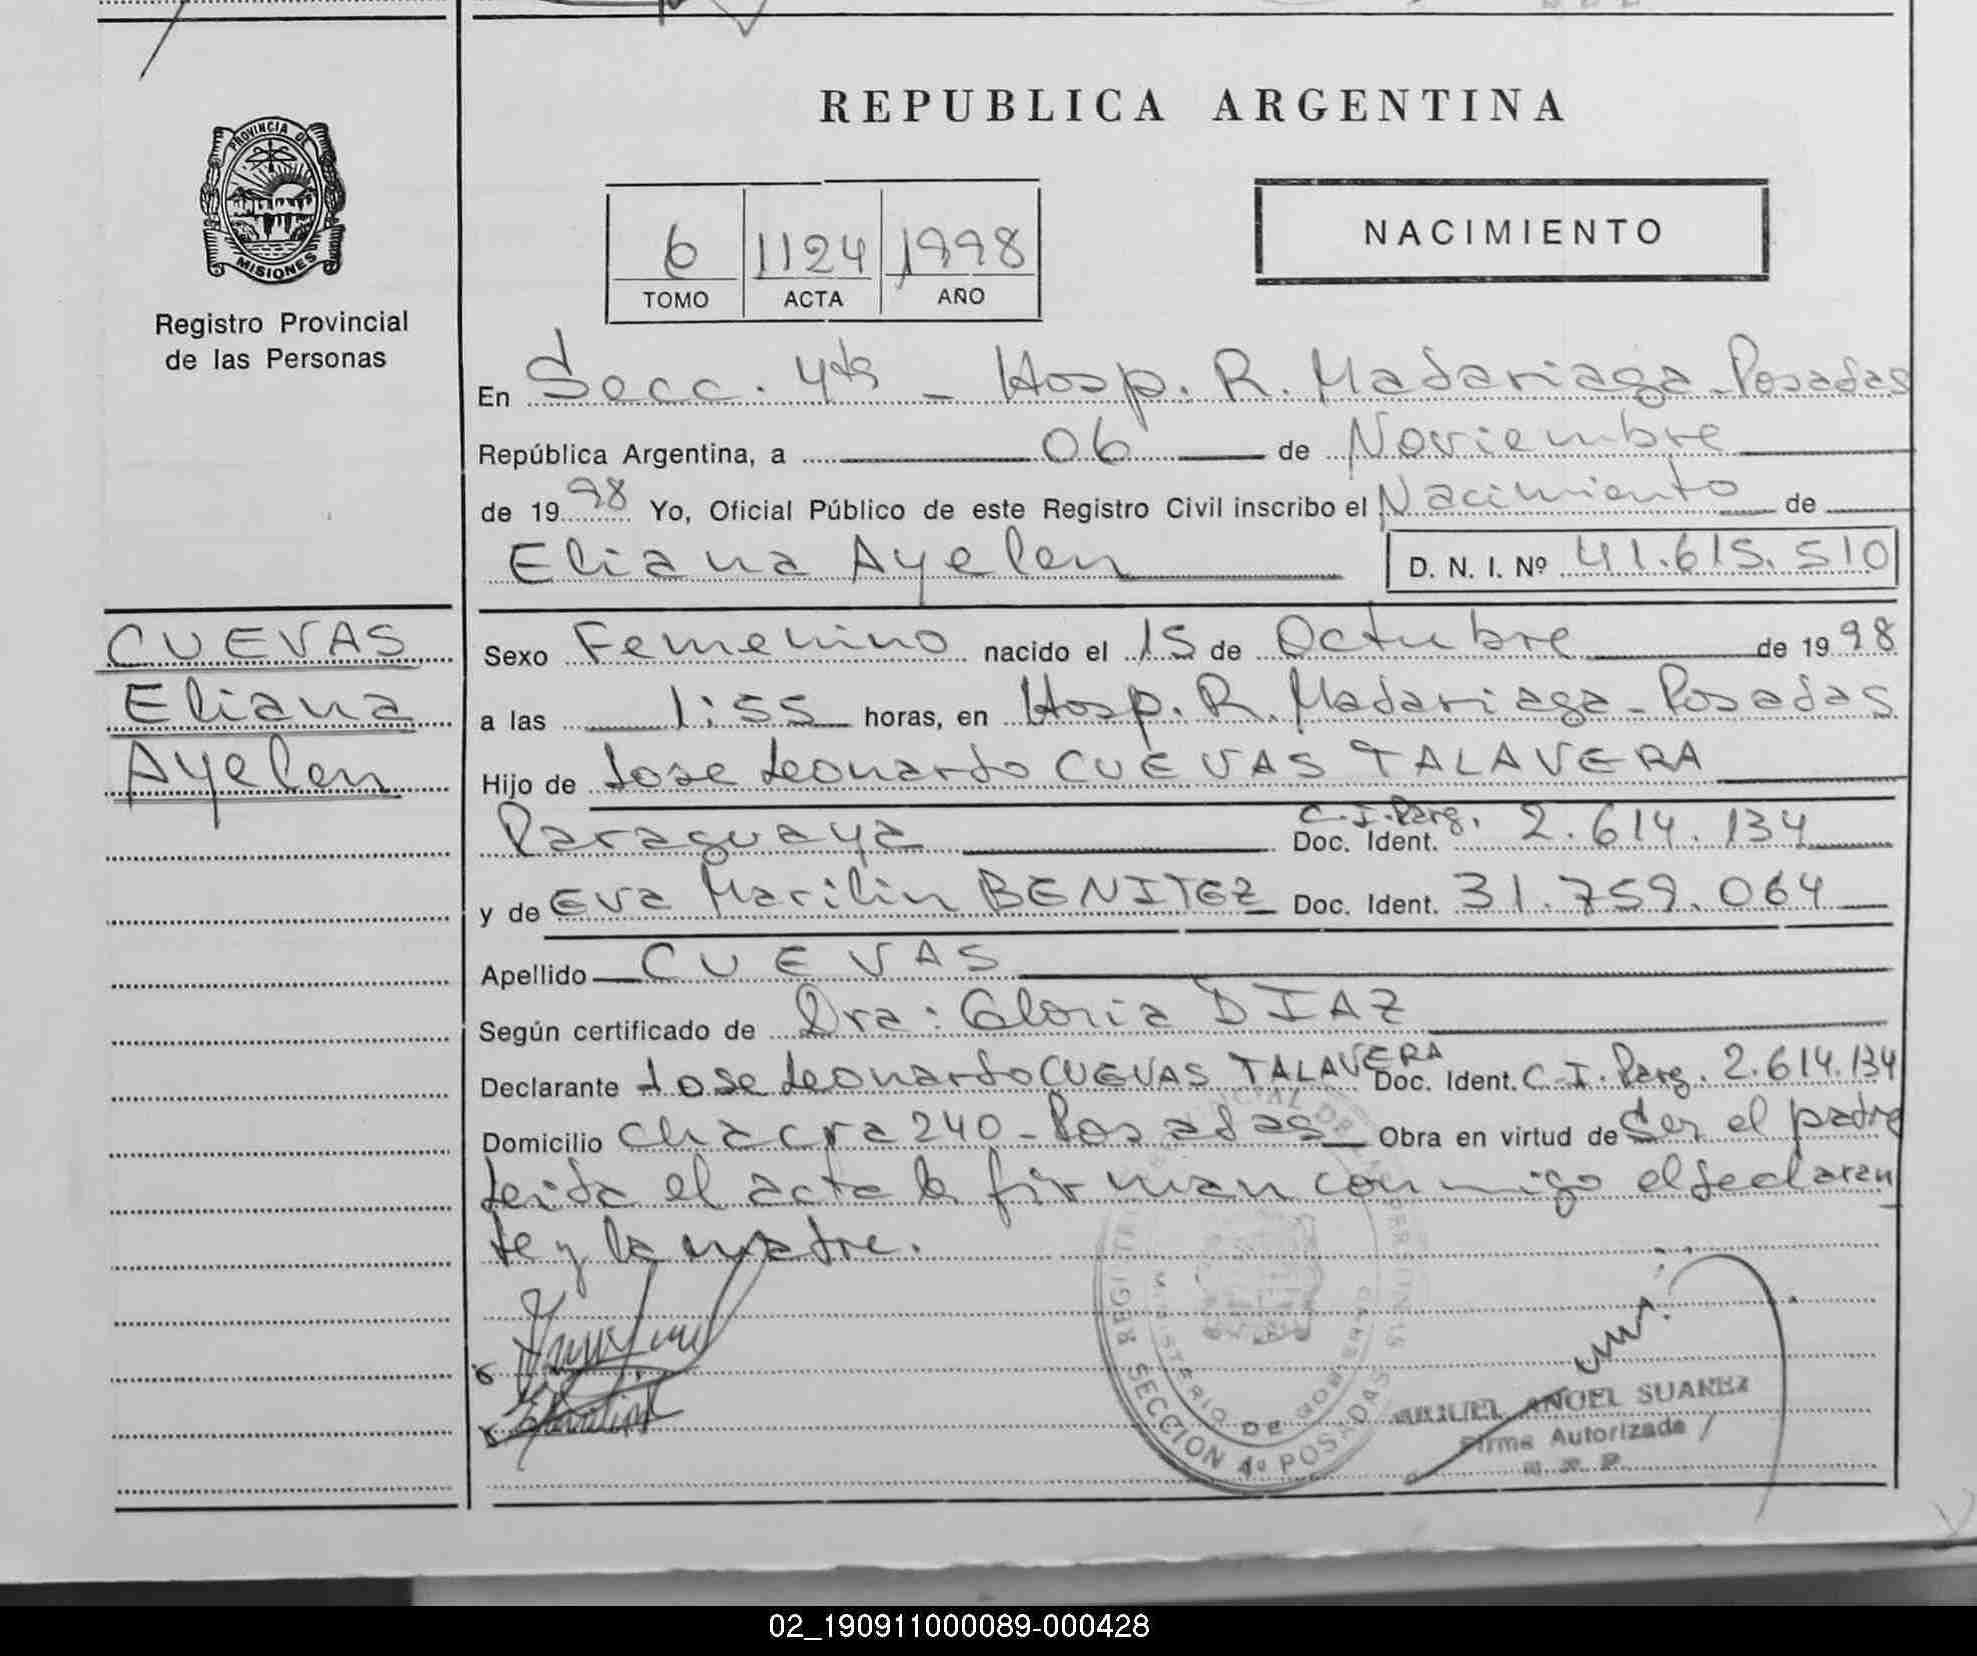 REPUBLICA ARGENTINA
PROVINCIA DE
MISIONES
Registro Provincial
de las Personas
6 1124 1998
TOMO ACTA AÑO
NACIMIENTO
En Secc. 4ta - Hosp. R. Madariaga - Posadas
República Argentina, a 06 de Noviembre
de 1998 Yo, Oficial Público de este Registro Civil inscribo el Nacimiento de
Eliana Ayelen D. N. I. Nº 41.615.510
CUEVAS
Eliana
Ayelen
Sexo Femenino nacido el 15 de Octubre de 1998
a las 1:55 horas, en Hosp. R. Madariaga - Posadas
Hijo de Jose Leonardo CUEVAS TALAVERA
Paraguaya Doc. Ident. C.I. Parg. 2.614.134
y de Eva Marilin BENITEZ Doc. Ident. 31.759.064
Apellido CUEVAS
Según certificado de Dra: Gloria DIAZ
Declarante Jose Leonardo CUEVAS TALAVERA Doc. Ident. C.I. Parg. 2.614.134
Domicilio Chacra 240 - Posadas Obra en virtud de Ser el padre
leida el acta la firman conmigo el declaran
te y la madre.
MINISTERIO DE GOBIERNO
SECCION 4º POSADAS
MIGUEL ANGEL SUAREZ
Firma Autorizada
02_190911000089-000428